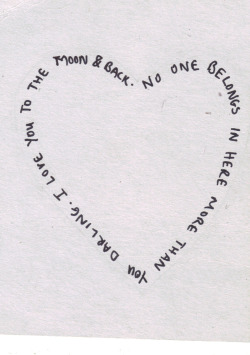 No ONE BELONGS IN HERE MORE THAN YOU DARLING. I LOVE YOU TO THE MOON & BACK.